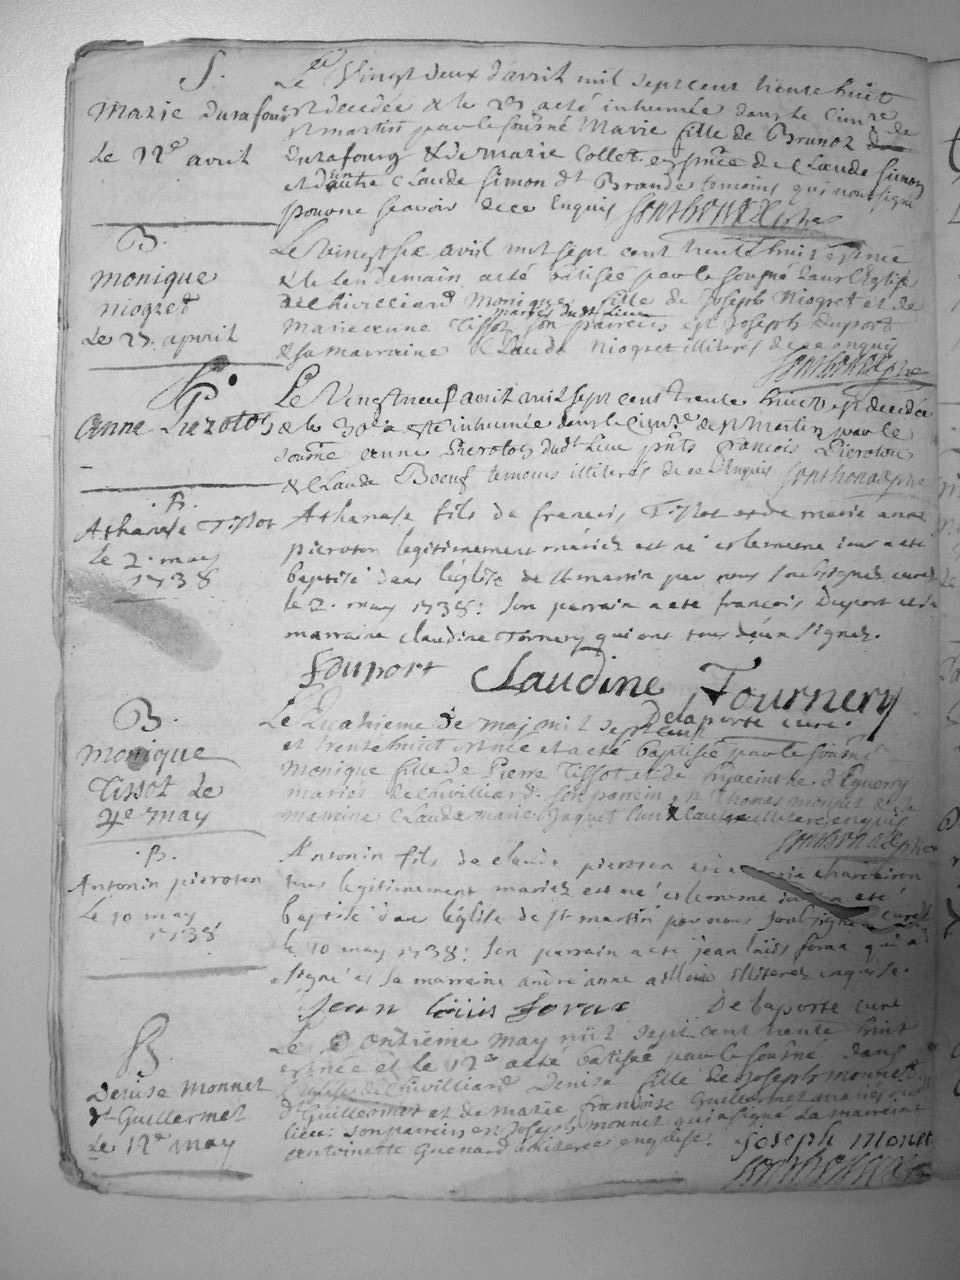 S.
Marie Durafour
Le 22e avril
Le Vingt deux d'avril mil sept cent trente huit
est decedée & le 23 a eté inhumée dans le Cimre de
st martin par le sousné Marie fille de Brunoz
Durafourg & de marie Collet en pnce de Claude Simon
et d'un autre Claude Simon dt Brande temoins qui n'ont signé
pour ne scavoir de ce Enquis
B.
monique
niogret
Le 27. apvril
Le vingt six avril mil sept cent trente huit est née
& le lendemain a eté batisée par le sousné dans l'Eglise
de Chivilliard Monique fille de Joseph Niogret et de
Marie anne Tissoz mariés dudt Lieu son parrein est Joseph duport
& sa marraine Claude Niogret illiteres de ce enquis
S.
Anne Pierotoz
Le Vingt neuf avril mil sept cent trente huit est decedée
& le 30e a esté inhumée dans le Cimre de st Martin par le
sousné anne Pierotoz dudt Lieu pnts francois Pieroton
& Claude Boeuf temoins illiteres de ce Enquis
.B.
Athanase Tissot
le 2. may
1738
Athanase fils de francois Tissot et de marie anne
pieroton legitimement mariez est né et le meme jour a eté
baptisé dans léglise de st martin par nous soussignez curé
le 2. may 1738: son parrain a eté francois Duport et sa
marraine claudine Tornery qui ont tous deux signez.
fDuport Claudine Tournery
Delaporte curé.
B.
monique
Tissot Le
4e may
Le Quatrieme de maj mil sept cent
et trente huit est née et a eté baptisée par le sousné
Monique fille de Pierre Tissot et de hyacinthe d'Equerry
mariés de Chivilliard. Son parrein est Thomas monnet & la
marreine Claude marie illitere enquis
.B.
Antonin pieroton
Le 10 may
1738
Antonin fils de claude pieroton et de marie charviron
tous legitimement mariez est né et le meme jour a eté
baptisé dans léglise de st martin par nous soussigné curé
le 10 may 1738: son parrain a eté jean louis foras qui a
signé et sa marraine andreanne illiterez enquise.
Jean louis foras Delaporte curé
B.
Denise Monnet
dt Guillermet
Le 12e may
Le Onzieme may mil sept cent trente huit
est née et le 12e a eté batisée par le sousné dans
l'Eglise de Chivilliard Denise fille de Joseph monnet
dt Guillermet et de marie francoise Guillermet mariés du
lieu: son parrein est Joseph monnet qui a signé La marreine
antoinette Guenard illiteree enquise.
Joseph Monet